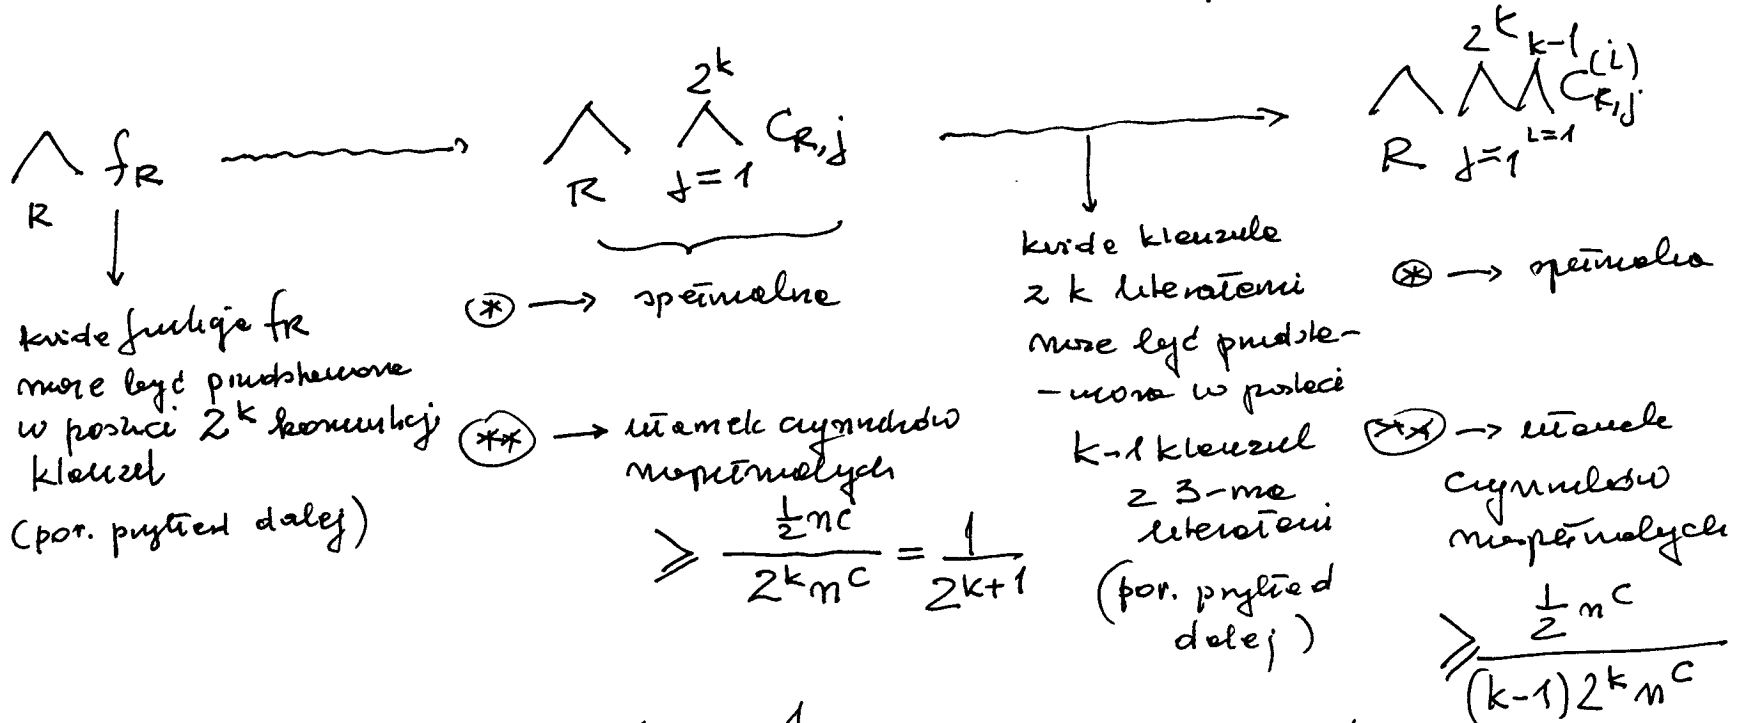 ⋀_R f_R ⟶ ⋀_R ⋀_{j=1}^{2^k} C_{R,j} ⟶ ⋀_R ⋀_{j=1}^{2^k} ⋀_{i=1}^{k-1} C_{R,j}^{(i)}
każda funkcja f_R
może być przedstawiona
w postaci 2^k koniunkcji
klauzul
(por. przykład dalej)
(*) → spełnialne
(**) → ułamek czynników
niespełnialnych
≥ \frac{\frac{1}{2} n^c}{2^k n^c} = \frac{1}{2^{k+1}}
każda klauzula
z k literałami
może być przedsta-
-wiona w postaci
k-1 klauzul
z 3-ma
literałami
(por. przykład
dalej)
(*) → spełnialna
(**) → ułamek
czynników
niespełnialnych
≥ \frac{\frac{1}{2} n^c}{(k-1) 2^k n^c}